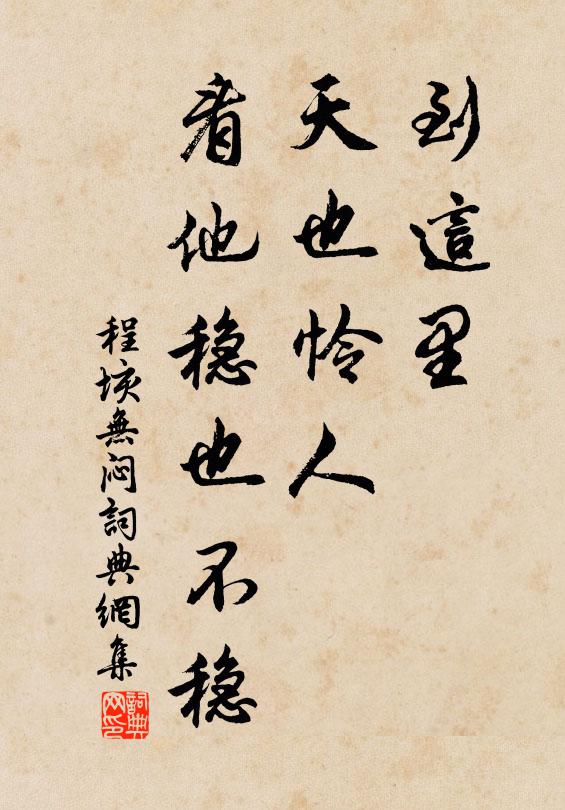 到這里
天也怜人
看他穏也不穏
程垓無闷詞典網集
詞典网印